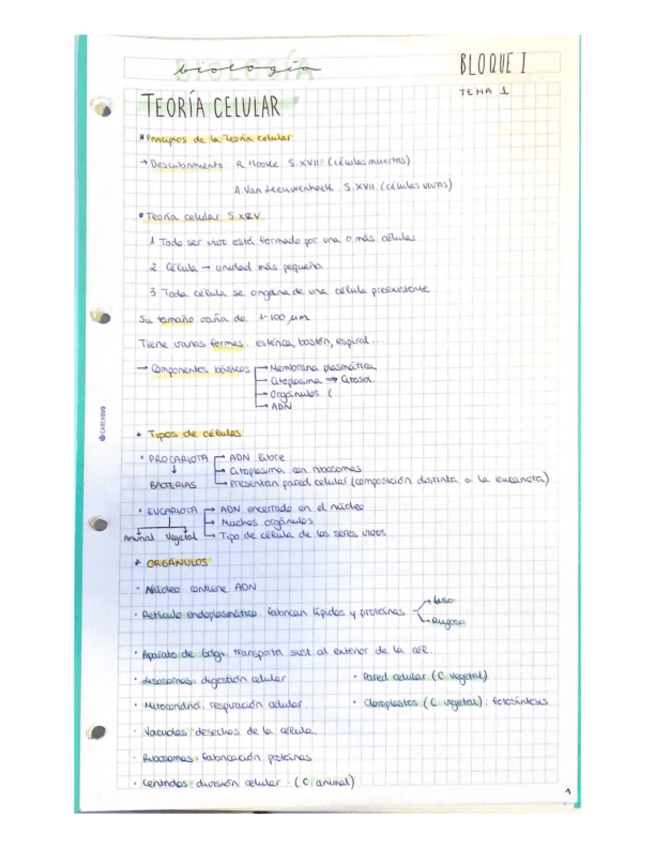 biología
BIOLOGÍA
BLOQUE I
TEMA 1
TEORÍA CELULAR
* Principios de la Teoría celular
→ Descubrimiento R. Hooke S.XVII (células muertas)
A. Van Leeuwenhoek S.XVII (células vivas)
• Teoría celular
1 Todo ser vivo está formado por una o más células
2 Célula → unidad más pequeña
3 Toda célula se origina de una célula preexistente
Su tamaño varía de 1-100 µm
Tiene varias formas: esférica, bastón, espiral...
→ Componentes básicos → Membrana plasmática
→ Citoplasma → Citosol
→ Orgánulos (
→ ADN
* Tipos de células
• PROCARIOTA → ADN libre
→ Citoplasma con ribosomas
BACTERIAS → Presentan pared celular (composición distinta a la eucariota)
• EUCARIOTA → ADN encerrado en el núcleo
→ Muchos orgánulos
Animal Vegetal → Tipo de célula de los seres vivos
* ORGÁNULOS
• Núcleo contiene ADN
• Retículo endoplasmático fabrican lípidos y proteínas → Liso
→ Rugoso
• Aparato de Golgi: transporta sust. al exterior de la cél.
• Lisosomas: digestión celular
• Pared celular (C vegetal)
• Mitocondria: respiración celular
• Cloroplastos (C vegetal): fotosíntesis
• Vacuolas: desechos de la célula.
• Ribosomas: fabricación proteínas
• Centriolos: división celular. (C animal)
1